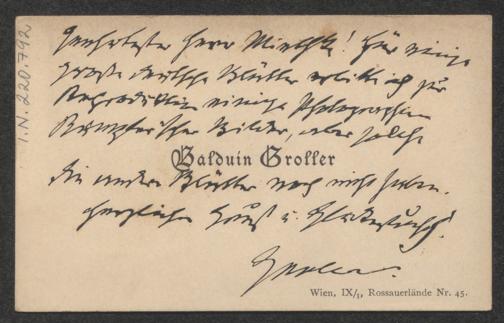 I.N. 220.792
Geehrtester Herr Miethke! Für einige
große deutsche Blätter erbitte ich zur
Reproduktion einige Photographien
Künstlerischer Bilder, aber solche
Balduin Groller
die andere Blätter noch nicht haben.
Herzlichen Gruß u.
Groller.
Wien, IX/1, Rossauerlände Nr. 45.